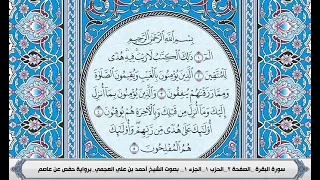 بِسْمِ اللَّهِ الرَّحْمَٰنِ الرَّحِيمِ
الٓمٓ ١ ذَٰلِكَ الْكِتَٰبُ لَا رَيْبَ فِيهِ هُدًى
لِّلْمُتَّقِينَ ٢ الَّذِينَ يُؤْمِنُونَ بِالْغَيْبِ وَيُقِيمُونَ الصَّلَوٰةَ
وَمِمَّا رَزَقْنَٰهُمْ يُنفِقُونَ ٣ وَالَّذِينَ يُؤْمِنُونَ بِمَا أُنزِلَ
إِلَيْكَ وَمَا أُنزِلَ مِن قَبْلِكَ وَبِالْءَاخِرَةِ هُمْ يُوقِنُونَ ٤
أُولَٰئِكَ عَلَىٰ هُدًى مِّن رَّبِّهِمْ وَأُولَٰئِكَ
هُمُ الْمُفْلِحُونَ ٥
سورة البقرة _ الصفحة ٢ _ الحزب ١ _ الجزء ١ _ بصوت الشيخ أحمد بن علي العجمي _ برواية حفص عن عاصم